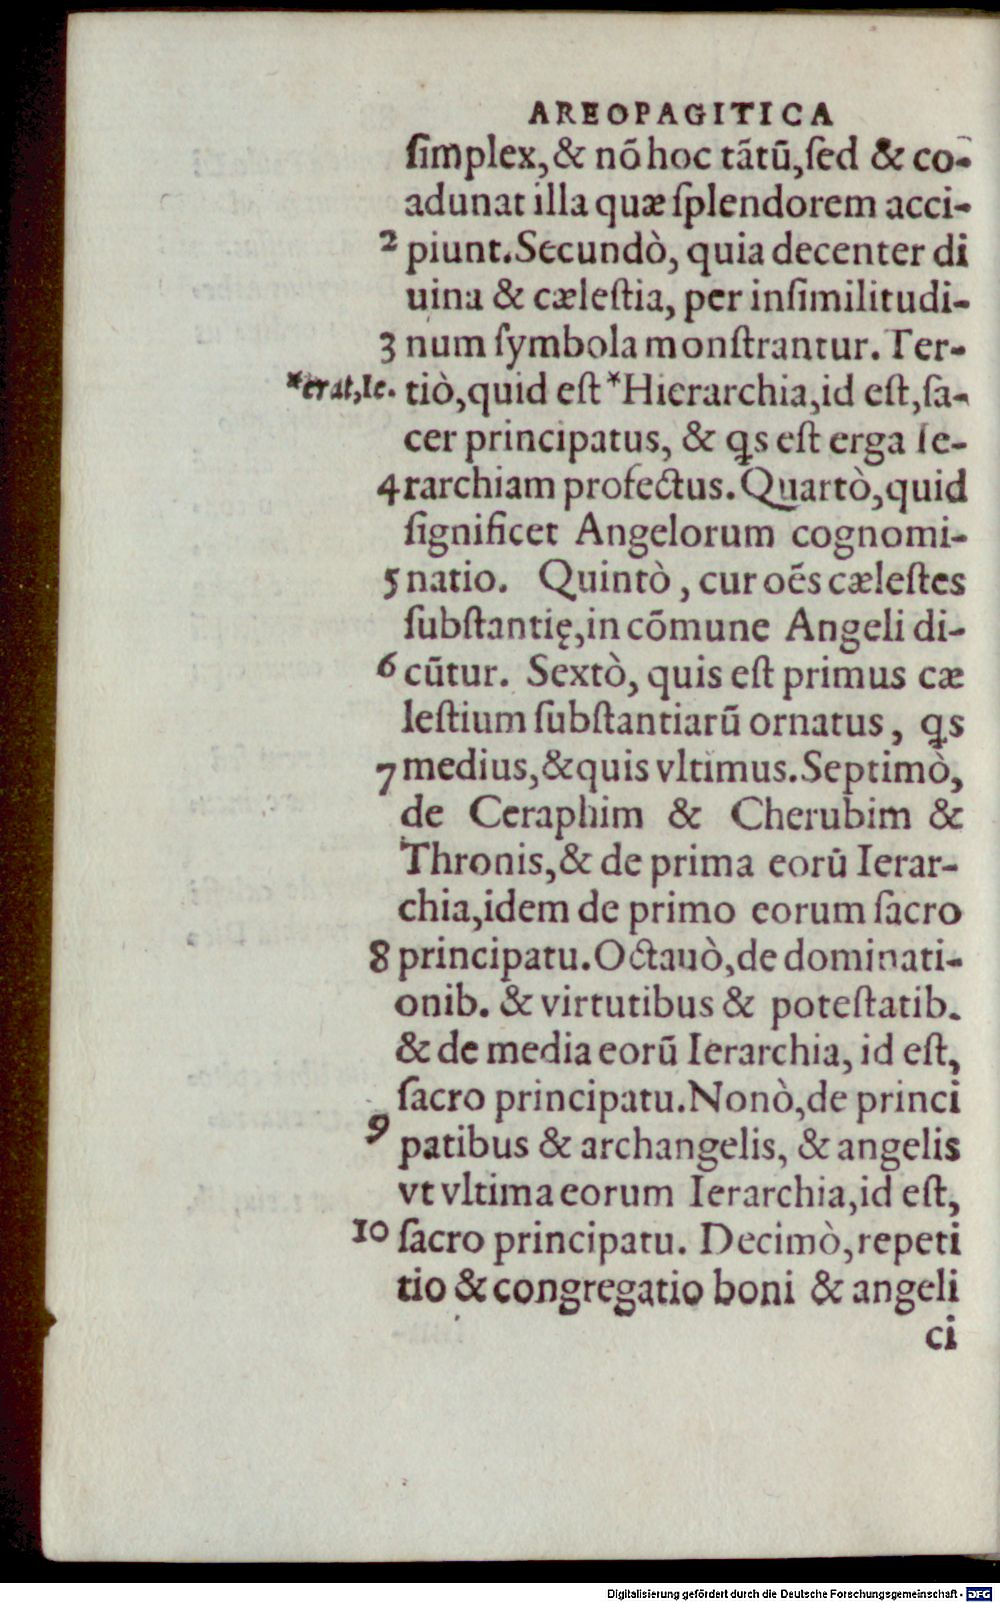 AREOPAGITICA
ſimplex, & nõ hoc tãtũ, ſed & co-
adunat illa quæ ſplendorem acci-
2 piunt. Secundò, quia decenter di
uina & cæleſtia, per inſimilitudi-
3 num ſymbola monſtrantur. Ter-
*erat, Ie. tiò, quid eſt *Hierarchia, id eſt, ſa-
cer principatus, & ꝗs eſt erga Ie-
4 rarchiam profectus. Quartò, quid
ſignificet Angelorum cognomi-
5 natio. Quintò, cur oẽs cæleſtes
ſubſtantię, in cõmune Angeli di-
6 cũtur. Sextò, quis eſt primus cæ
leſtium ſubſtantiarũ ornatus, ꝗs
7 medius, & quis vltimus. Septimò,
de Ceraphim & Cherubim &
Thronis, & de prima eorũ Ierar-
chia, idem de primo eorum ſacro
8 principatu. Octauò, de dominati-
onib. & virtutibus & poteſtatib.
& de media eorũ Ierarchia, id eſt,
ſacro principatu. Nonò, de princi
9 patibus & archangelis, & angelis
vt vltima eorum Ierarchia, id eſt,
10 ſacro principatu. Decimò, repeti
tio & congregatio boni & angeli
ci
Digitalisierung gefördert durch die Deutsche Forschungsgemeinschaft - DFG